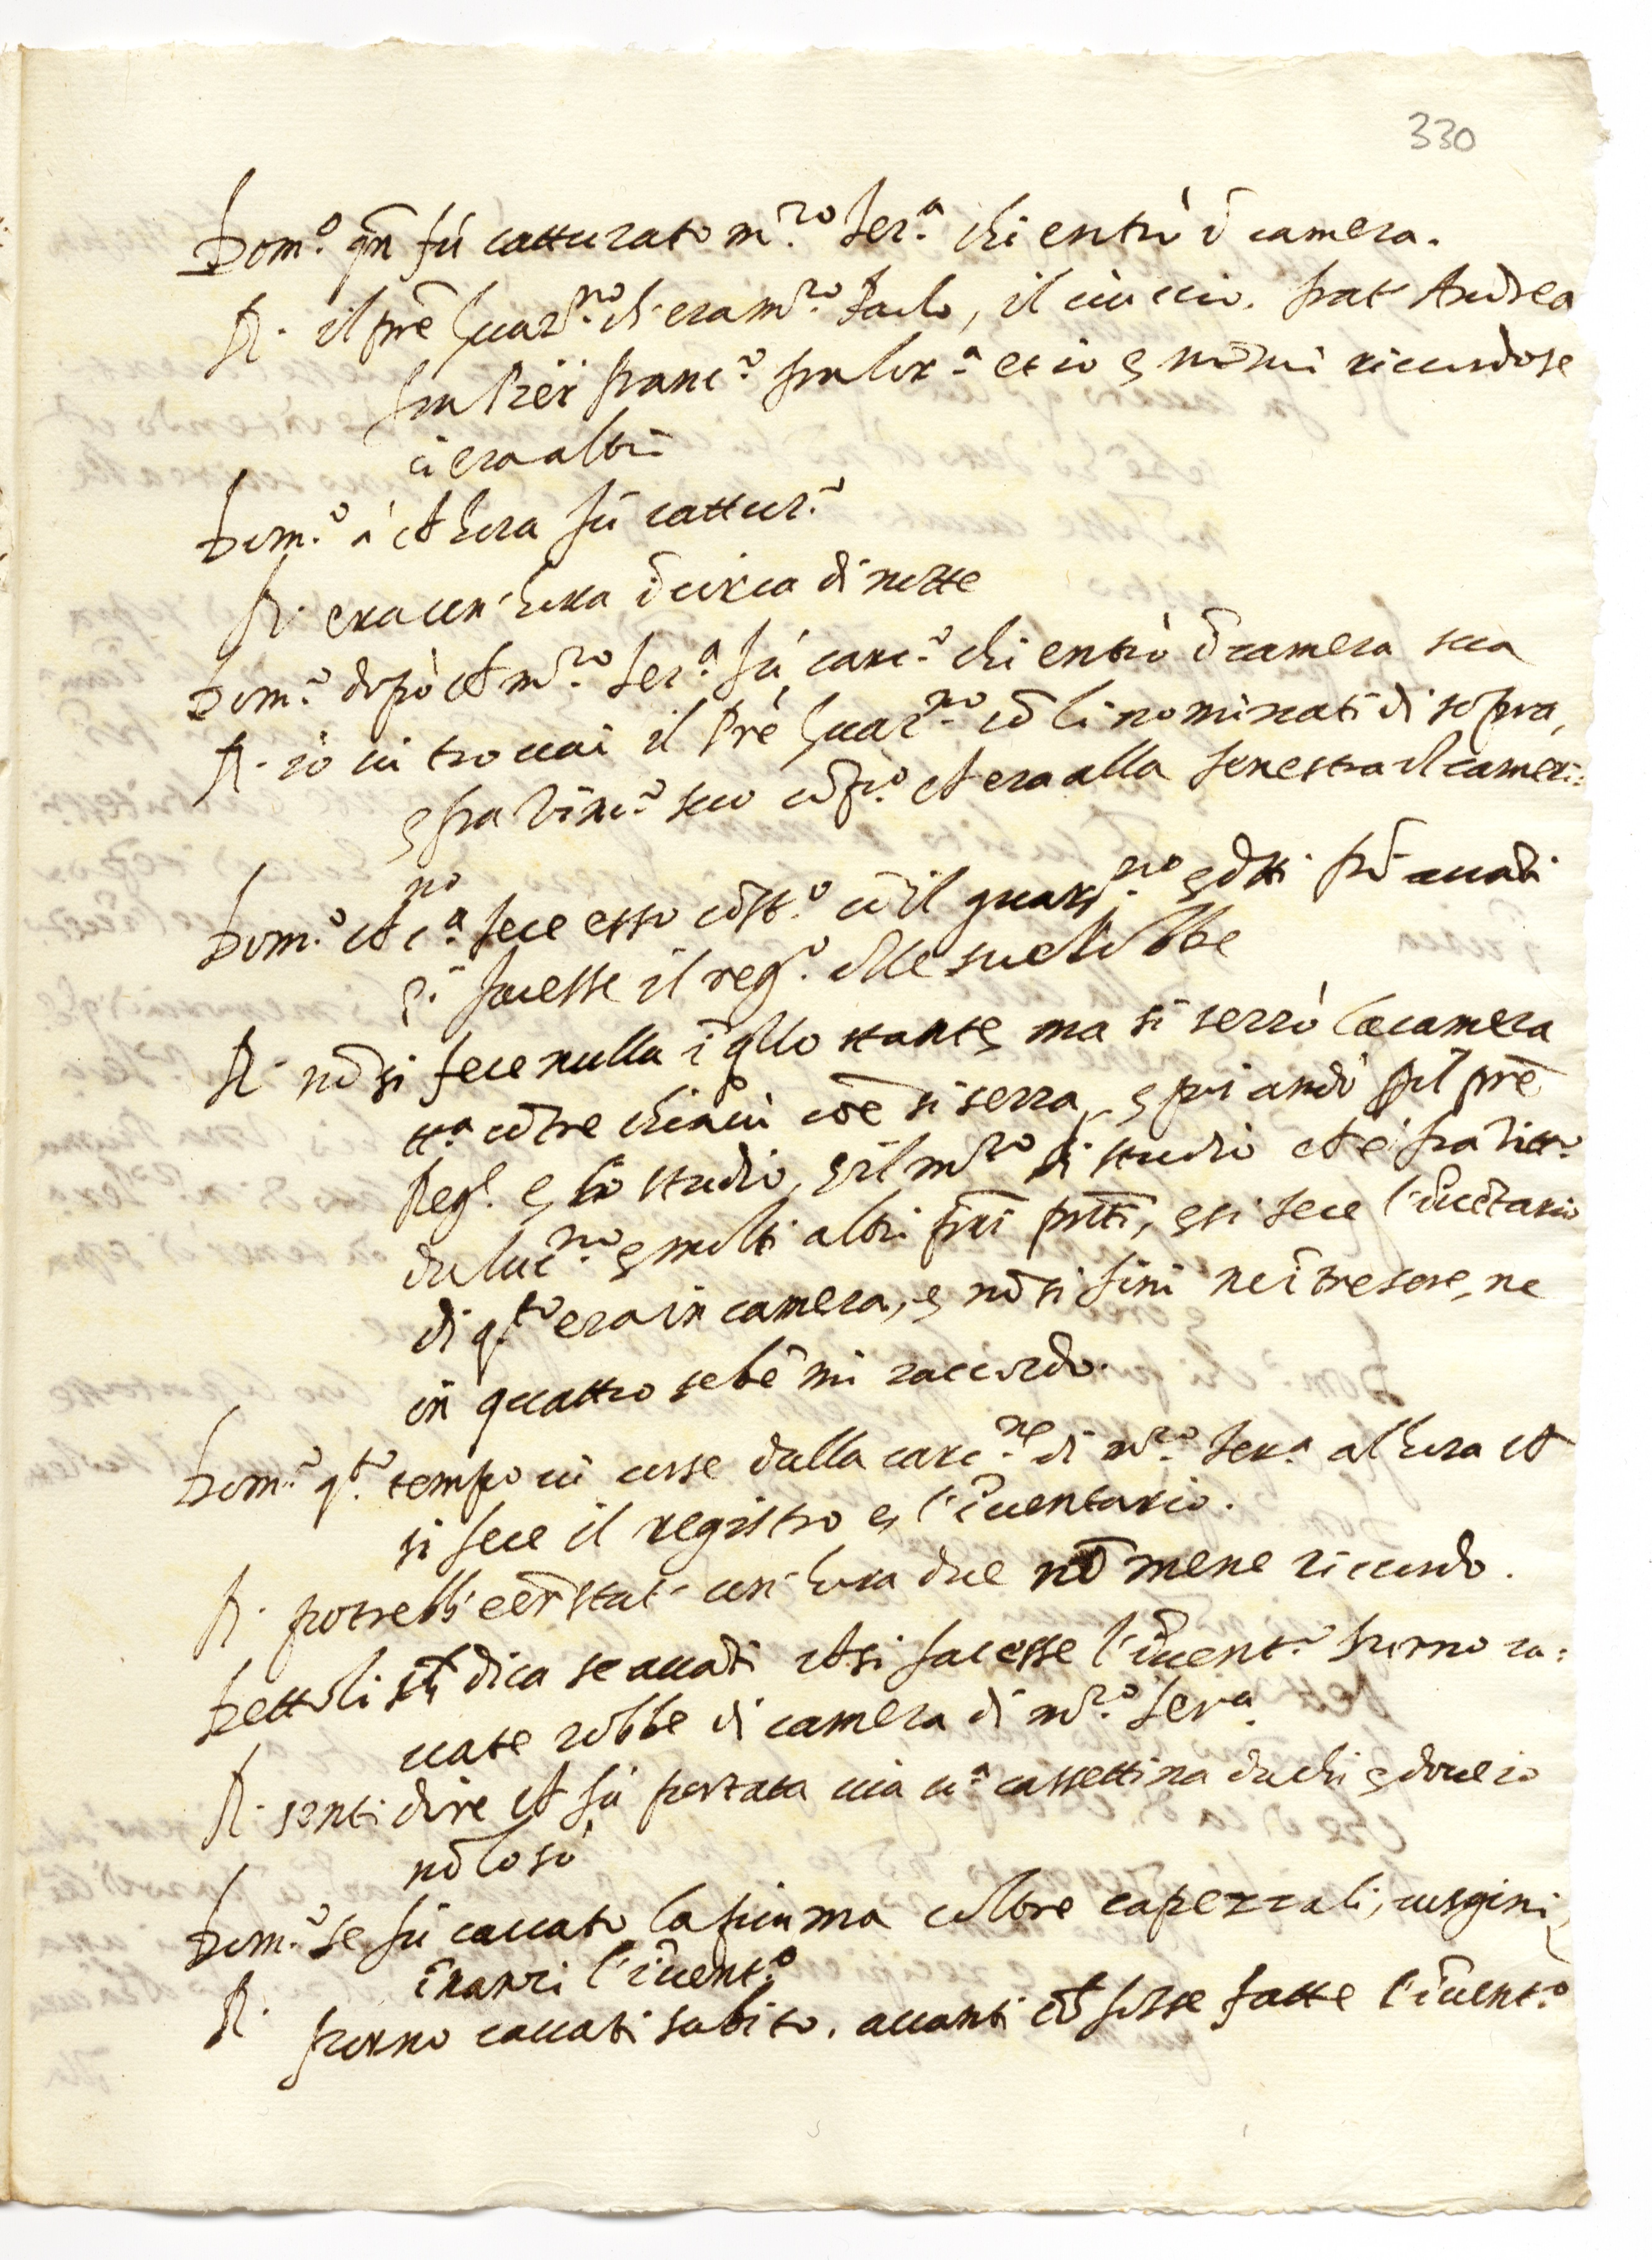 330
Dom.º qñ fù catturato m.ro Ser.ª chi entrò ĩ camera.
R. il prẽ Guar.no ch'era m.ro Paolo, il ciuccio. frat' Andrea
fra Pier franc.º fra lor.ª et io e nõ mi riccordo se
ci era altri
Dom.º à ch hora fù cattur.º
R. era un' hora ĩ circa di notte
Dom.º dopò ch m.ro Ser.ª fù carc.º chi entrò ĩ camera sua
R. io vi trovai il Prẽ Guar.no cõ li nominati di sopra,
e fra Vinc.º suo cõp.º ch era alla fenestra d cameri=
no
Dom.º ch c.ª fece esso cõst.º cõ il guard.no e dtti prĩ avãti
si facesse il reg.º dlle sue robbe
R. nõ si fece nulla ĩ qllo stante, ma si serrò la camera
cõ tre chiavi coẽ si serra, e poi andò il prẽ
Reg. e lo studio, e il m.ro di studio ch è fra Vitt.º
da luc.no e molti altri frĩ pñti, e si fece l'ĩvẽtario
di q.to era in camera, e nõ si finì nei tre sere, ne
in quattro se bẽ mi raccordo.
Dom.º q.to tempo vi corse dalla carc.ne di m.ro Ser.ª al hora ch
si fece il registro e l'ĩventario.
R. potrebb' eẽr stat' un' hora due nõ me ne riccordo.
Dettoli ch dica se avãti ch si facesse l'ĩvent.º furno ca=
vate robbe di camera di m.ro Ser.ª
R. senti dire ch fù portata via u.ª cassettina da chi e dove io
nõ lo sò
Dom.º se fù cavato la piuma coltre capezzali, cusgini
ĩnanzi l'ĩvent.º
R. furno cavati subito. avanti ch fosse fatte l'ĩvent.º